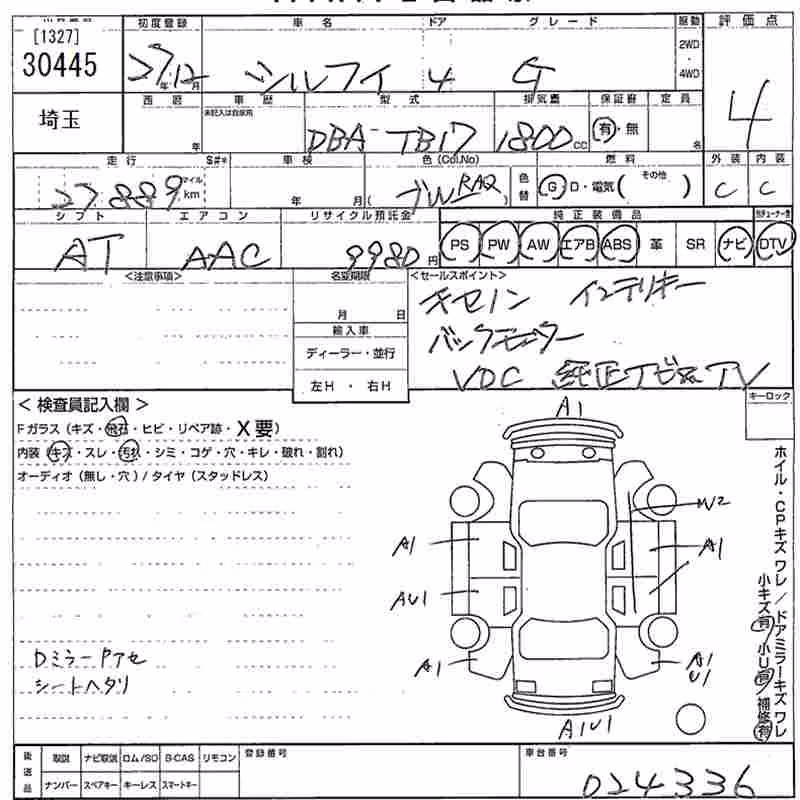 [1327]
30445
埼玉
初度登録
27年12月
車名
シルフィ
ドア
4
グレード
G
駆動
2WD
・
4WD
評価点
4
西暦
年
車歴
未記入は自家用
型式
DBA-TB17
排気量
1800cc
保証書
有・無
定員
名
走行
27889
マイル
km
S#*
車検
年 月
色(Col.No)
色替
燃料
G・D・電気( その他 )
外装
C
内装
C
シフト
AT
エアコン
AAC
リサイクル預託金
9980円
純正装備品
PS PW AW エアB ABS 革 SR ナビ DTV
<注意事項>
名変期限
月 日
輸入車
ディーラー・並行
左H ・ 右H
<セールスポイント>
キセノン インテリキー
バックモニター
VDC 純正ナビ TV
<検査員記入欄>
Fガラス(キズ・飛石・ヒビ・リペア跡・X要)
内装(キズ・スレ・汚れ・シミ・コゲ・穴・キレ・破れ・割れ)
オーディオ(無し・穴)/タイヤ(スタッドレス)
キーロック
A1
W2
A1
A1
AU1
A1
A1
U1
A1U1
Dミラーアセ
シートヘタリ
ホイル・CPキズワレ/ドアミラーキズワレ
小キズ有 小U有 補修有
後送品
取説 ナビ取説 ロム/SD B-CAS リモコン
ナンバー スペアキー キーレス スマートキー
登録番号
車台番号
024336